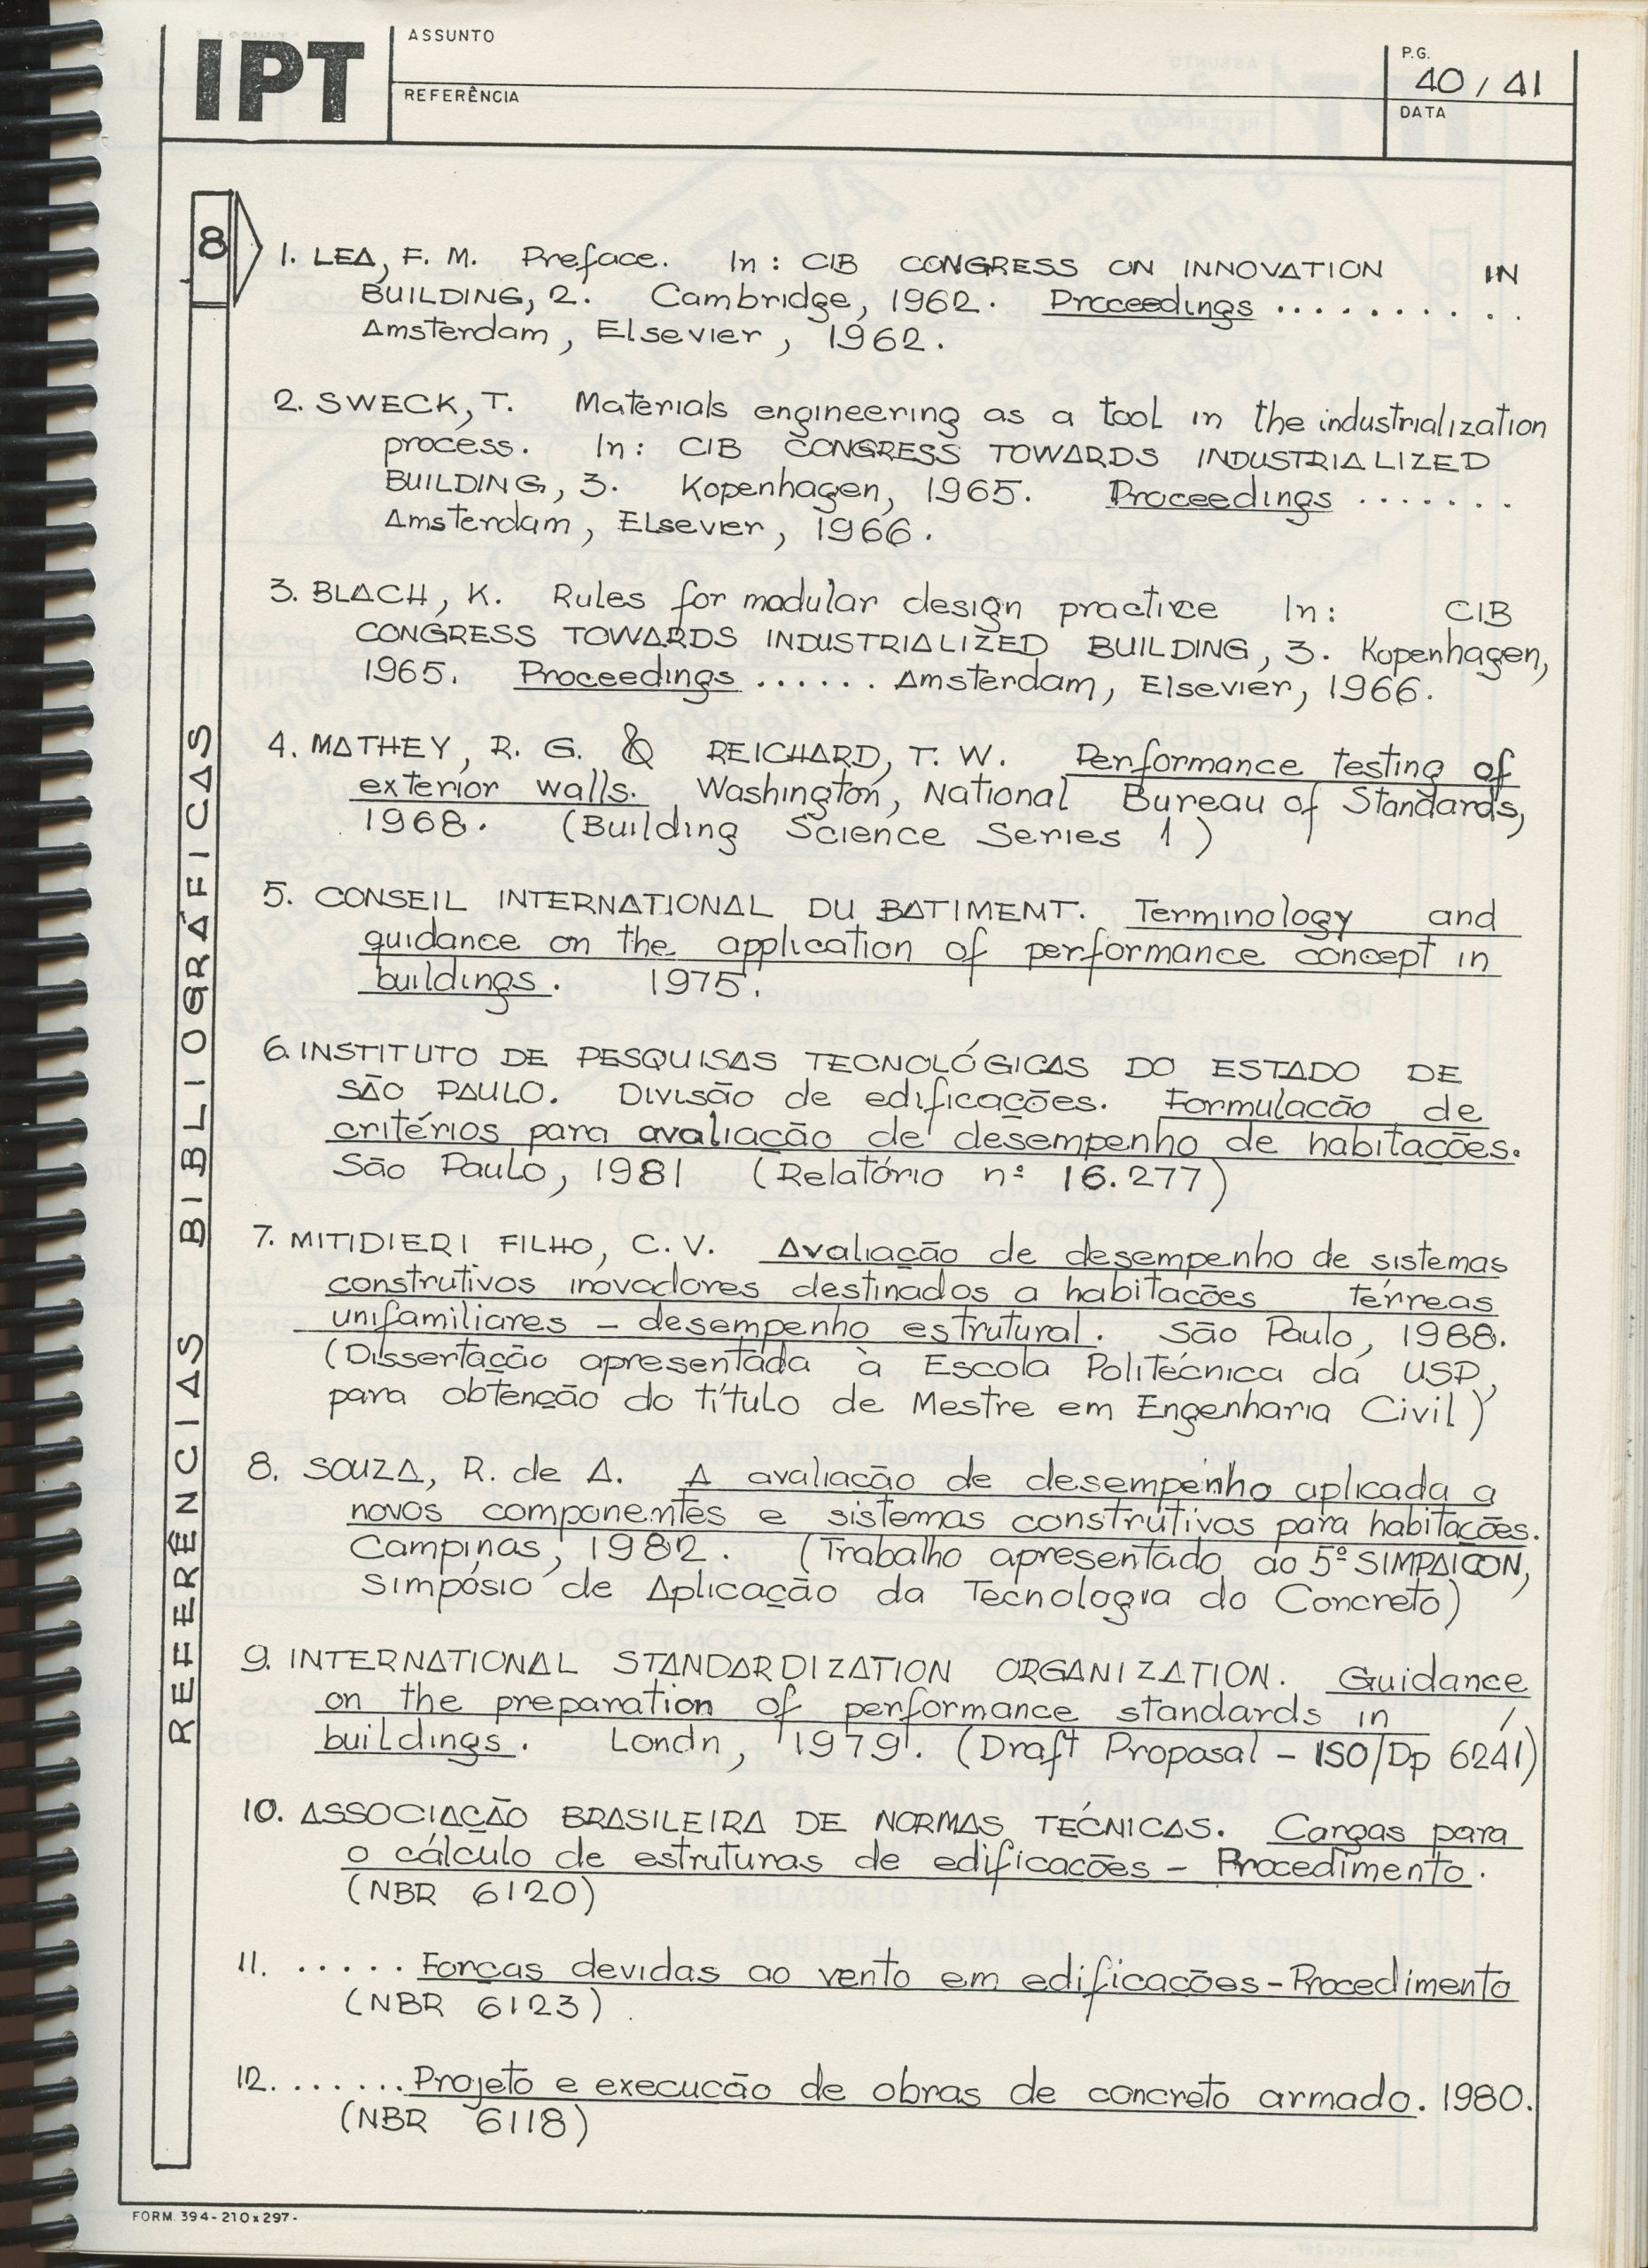 IPT
ASSUNTO
REFERÊNCIA
P.G.
40 / 41
DATA
8
REFERÊNCIAS BIBLIOGRÁFICAS
1. LEA, F. M. Preface. In: CIB CONGRESS ON INNOVATION IN
BUILDING, 2. Cambridge, 1962. Proceedings ...........
Amsterdam, Elsevier, 1962.
2. SWECK, T. Materials engineering as a tool in the industrialization
process. In: CIB CONGRESS TOWARDS INDUSTRIALIZED
BUILDING, 3. Kopenhagen, 1965. Proceedings .......
Amsterdam, Elsevier, 1966.
3. BLACH, K. Rules for modular design practice In: CIB
CONGRESS TOWARDS INDUSTRIALIZED BUILDING, 3. Kopenhagen,
1965. Proceedings ...... Amsterdam, Elsevier, 1966.
4. MATHEY, R. G. & REICHARD, T. W. Performance testing of
exterior walls. Washington, National Bureau of Standards,
1968. (Building Science Series 1)
5. CONSEIL INTERNATIONAL DU BATIMENT. Terminology and
guidance on the application of performance concept in
buildings. 1975.
6. INSTITUTO DE PESQUISAS TECNOLÓGICAS DO ESTADO DE
SÃO PAULO. Divisão de edificações. Formulação de
critérios para avaliação de desempenho de habitações.
São Paulo, 1981 (Relatório nº 16.277)
7. MITIDIERI FILHO, C. V. Avaliação de desempenho de sistemas
construtivos inovadores destinados a habitações térreas
unifamiliares - desempenho estrutural. São Paulo, 1988.
(Dissertação apresentada à Escola Politécnica da USP,
para obtenção do título de Mestre em Engenharia Civil)
8. SOUZA, R. de A. A avaliação de desempenho aplicada a
novos componentes e sistemas construtivos para habitações.
Campinas, 1982. (Trabalho apresentado ao 5º SIMPAICON,
Simpósio de Aplicação da Tecnologia do Concreto)
9. INTERNATIONAL STANDARDIZATION ORGANIZATION. Guidance
on the preparation of performance standards in
buildings. Londn, 1979. (Draft Proposal - ISO/Dp 6241)
10. ASSOCIAÇÃO BRASILEIRA DE NORMAS TÉCNICAS. Cargas para
o cálculo de estruturas de edificações - Procedimento.
(NBR 6120)
11. ..... Forças devidas ao vento em edificações - Procedimento
(NBR 6123)
12. ....... Projeto e execução de obras de concreto armado. 1980.
(NBR 6118)
FORM. 394-210x297-